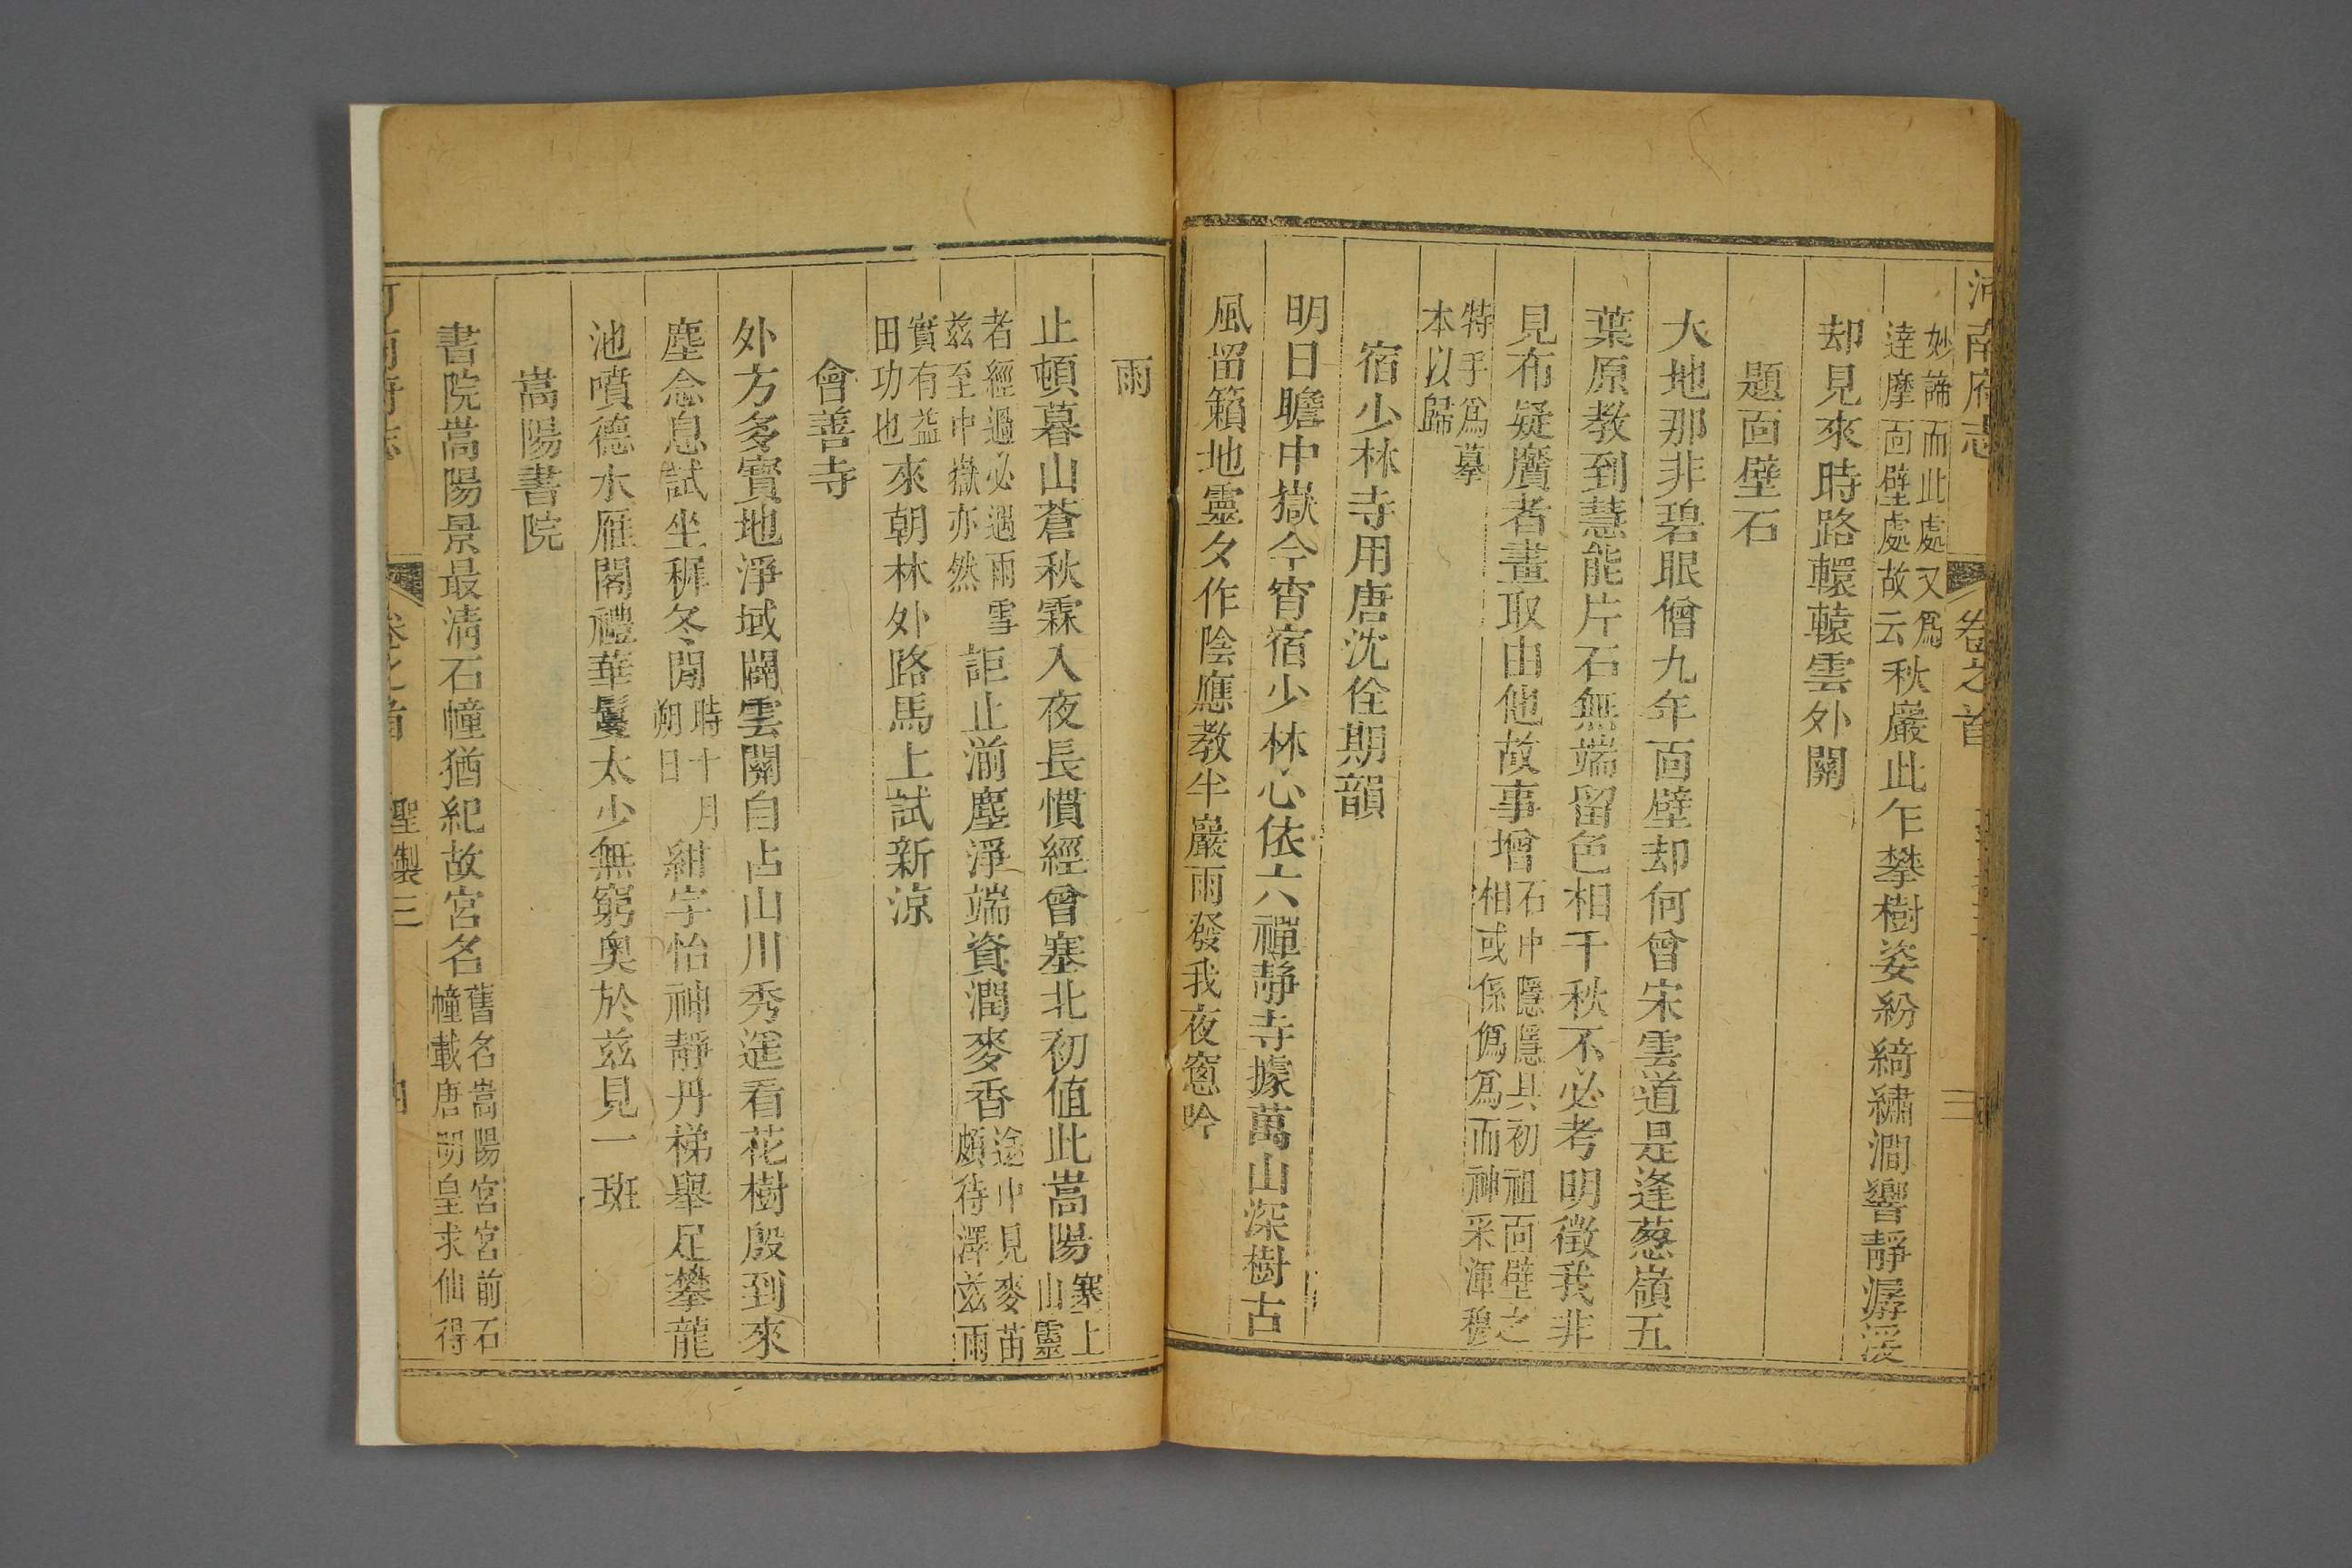 河南府志 卷之首 三
妙諦而此處又爲
達摩面壁處故云
秋巖此乍攀樹姿紛綺繡澗響靜潺湲
却見來時路轘轅雲外關
題面壁石
大地那非碧眼僧九年面壁却何曾宋雲道是逢葱嶺五
葉原教到慧能片石無端留色相千秋不必考明徵我非
見布疑贋者畫取由他故事增
石中隱隱具初祖面壁之
相或係僞爲而神采渾穆
特手爲摹
本以歸
宿少林寺用唐沈佺期韻
明日瞻中嶽今宵宿少林心依六禪靜寺據萬山深樹古
風留籟地靈夕作陰應教半巖雨發我夜窻吟
雨
止頓暮山蒼秋霖入夜長慣經曾塞北初值此嵩陽
塞上
山靈
者經過必遇雨雪
兹至中嶽亦然
詎止湔塵淨端資潤麥香
途中見麥苗
頗待澤兹雨
實有益
田功也
來朝林外路馬上試新涼
會善寺
外方多實地淨域闢雲關自占山川秀遑看花樹殷到來
塵念息試坐穉冬閒
時十月
朔日
紺宇怡神靜丹梯舉足攀龍
池噴德水雁閣禮華鬘太少無窮奥於兹見一斑
嵩陽書院
書院嵩陽景最清石幢猶紀故宮名
舊名嵩陽宮宮前石
幢載唐明皇求仙得
聖製三